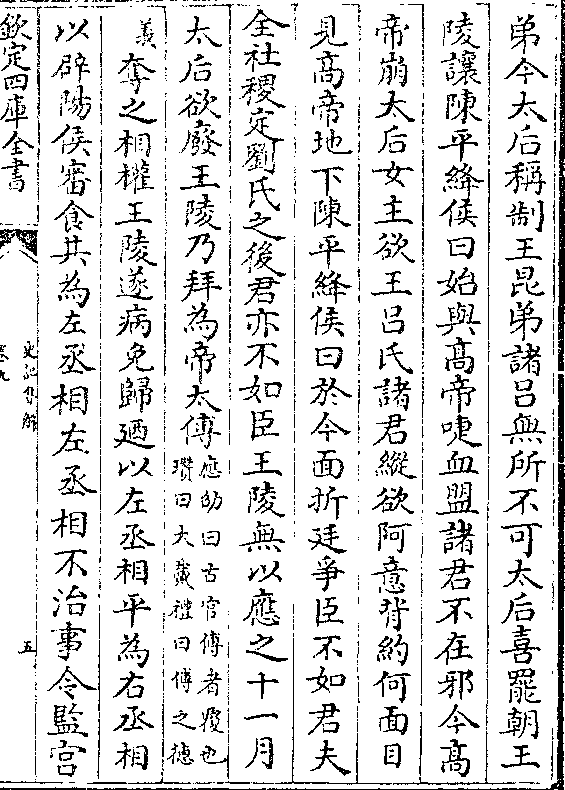 弟今太后稱制王昆弟諸呂無所不可太后喜罷朝王
陵讓陳平絳侯曰始與高帝啑血盟諸君不在邪今高
帝崩太后女主欲王呂氏諸君縱欲阿意背約何面目
見高帝地下陳平絳侯曰於今面折廷爭臣不如君夫
全社稷定劉氏之後君亦不如臣王陵無以應之十一月
太后欲廢王陵乃拜為帝太傅
應劭曰古官傅者覆也
瓚曰大戴禮曰傅之德
義
奪之相權王陵遂病免歸廼以左丞相平為右丞相
以辟陽侯審食其為左丞相左丞相不治事令監宫
欽定四庫全書
史記集解
卷九
五